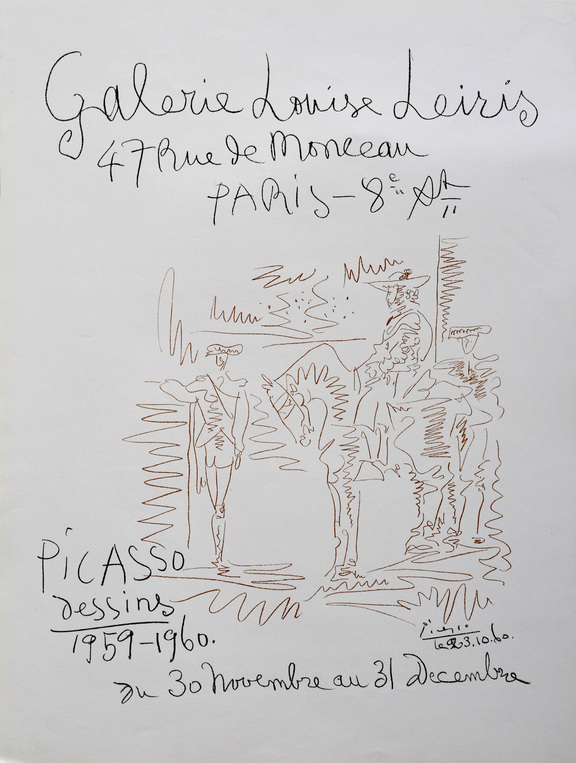 Galerie Louise Leiris
47 Rue de Monceau
PARIS – 8e Art
PICASSO
dessins
1959–1960.
Picasso
le 23.10.60.
du 30 Novembre au 31 Decembre